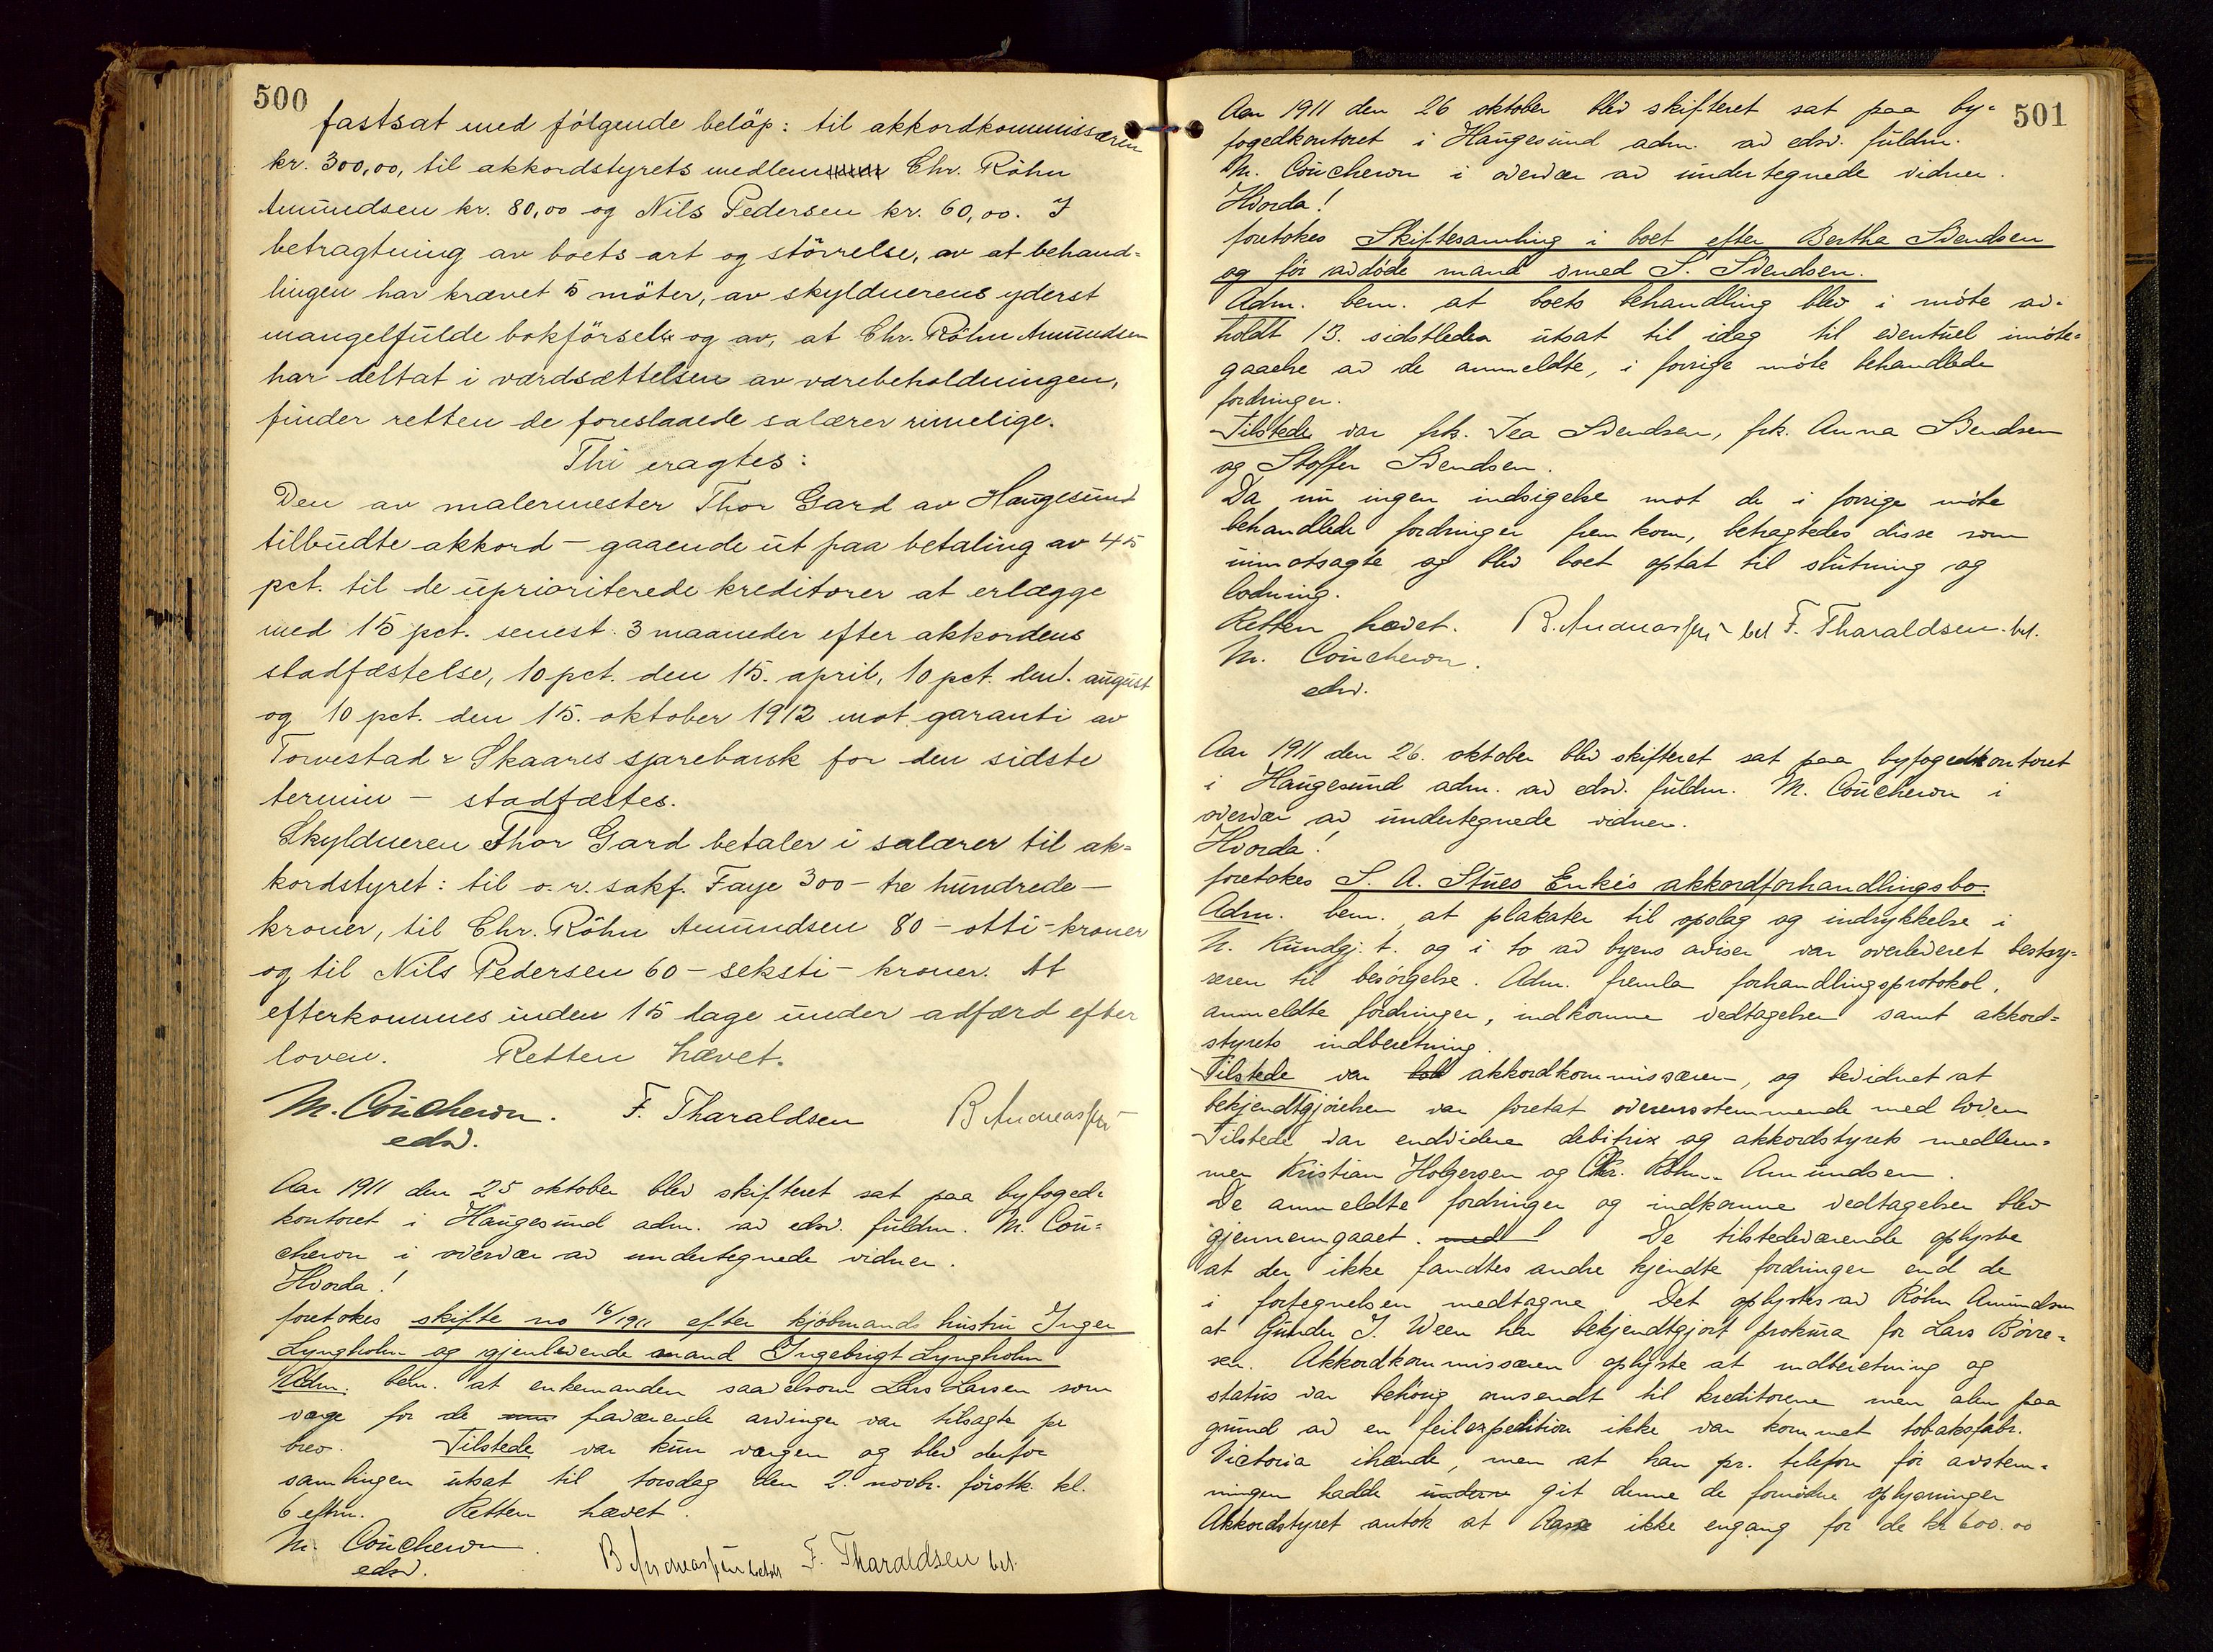 500
fastsat med følgende beløp: til akkordkommissæren
kr. 300,00, til akkordstyrets medlem Chr. Röhn
Amundsen kr. 80,00 og Nils Pedersen kr. 60,00. I
betragtning av boets art og störrelse, av at behand-
lingen har krævet 5 möter, av skyldnerens yderst
mangelfulde bokförsel og av, at Chr. Röhn Amundsen
har deltat i værdsættelsen av varebeholdningen,
finder retten de foreslaaede salærer rimelige.
Thi eragtes:
Den av malermester Thor Gard av Haugesund
tilbudte akkord – gaaende ut paa betaling av 45
pct. til de uprioriterede kreditorer at erlægge
med 15 pct. senest 3 maaneder efter akkordens
stadfæstelse, 10 pct. den 15. april, 10 pct. den 1. august
og 10 pct. den 15. oktober 1912 mot garanti av
Torvestad & Skaares sparebank for den sidste
termin – stadfæstes.
Skyldneren Thor Gard betaler i salærer til ak-
kordstyret: til o.r. sakf. Faye 300 – tre hundrede –
kroner, til Chr. Röhn Amundsen 80 – otti – kroner
og til Nils Pedersen 60 – seksti – kroner. At
efterkommes inden 15 dage under adfærd efter
loven. Retten hævet.
M. Coucheron. F. Tharaldsen B Andreassen
edsv.
Aar 1911 den 25 oktober blev skifteret sat paa byfoged-
kontoret i Haugesund adm. av edsv. fuldm. M. Cou-
cheron i overvær av undertegnede vidner.
Hvorda!
foretokes skifte no 16/1911 efter kjöbmands hustru Inger
Lyngholm og gjenlevende mand Ingebrigt Lyngholm
Adm. bem. at enkemanden saavelsom Lars Larsen som
verge for de fraværende arvinger var tilsagte pr
brev. Tilstede var kun vergen og blev derfor
samlingen utsat til torsdag den 2. novbr. förstk. kl.
6 eftm. Retten hævet.
M. Coucheron. B Andreassen F. Tharaldsen bet.
edsv.
501
Aar 1911 den 26 oktober blev skifteret sat paa by-
fogedkontoret i Haugesund adm. av edsv. fuldm.
M. Coucheron i overvær av undertegnede vidner.
Hvorda!
foretokes Skiftesamling i boet efter Bertha Svendsen
og før avdøde mand smed S. Svendsen.
Adm. bem. at boets behandling blev i møte av-
holdt 13. sidstleden utsat til idag til eventuel imøte-
gaaelse av de anmeldte, i forrige møte behandlede
fordringer.
Tilstede var frk. Tea Svendsen, frk. Anna Svendsen
og Stoffer Svendsen.
Da nu ingen indsigelse mot de i forrige møte
behandlede fordringer fremkom, betragtedes disse som
uimotsagte og blev boet optat til slutning og
lodning.
Retten hævet. B. Andreassen bet F. Tharaldsen. bet.
M. Coucheron.
edsv.
Aar 1911 den 26. oktober blev skifteret sat paa byfogedkontoret
i Haugesund adm. av edsv. fuldm. M. Coucheron i
overvær av undertegnede vidner.
Hvorda!
foretokes S. A. Stues Enke's akkordforhandlingsbo.
Adm. bem. at plakater til opslag og indrykkelse i
N. Kundgj. t. og i to av byens aviser var overleveret besty-
reren til besørgelse. Adm. fremla forhandlingsprotokol,
anmeldte fordringer, indkomne vedtagelser samt akkord-
styrets indberetning.
Tilstede var akkordkommissæren, og bevidnet at
bekjendtgjørelsen var foretat overensstemmende med loven
Tilstede var endvidere debitrix og akkordstyrets medlem-
mer Kristian Holgersen og Chr. Röhn Amundsen.
De anmeldte fordringer og indkomne vedtagelser blev
gjennemgaaet. med De tilstedeværende oplyste
at der ikke fandtes andre kjendte fordringer end de
i fortegnelsen medtagne. Det oplystes av Röhn Amundsen
at Gunder J. Ween har bekjendtgjort prokura for Lars Börre-
sen. Akkordkommissæren oplyste at indberetning og
status var behörig omsendt til kreditorene men alen paa
grund av en feilexpedition ikke var kommet tobaksfabr.
Victoria ihænde, men at han pr. telefon før avstem-
ningen hadde git denne de fornødne oplysninger
Akkordstyret antok at ikke engang for de kr 600.00